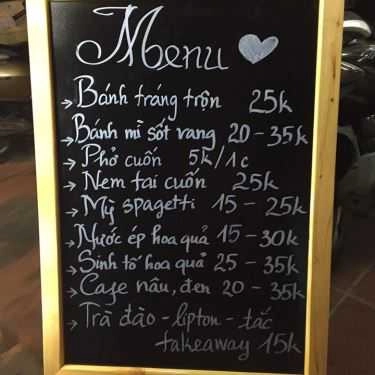 Menu
Bánh tráng trộn 25k
Bánh mì sốt vang 20-35k
Phở cuốn 5k/1c
Nem tai cuốn 25k
Mỳ spagetti 15-25k
Nước ép hoa quả 15-30k
Sinh tố hoa quả 25-35k
Cafe nâu, đen 20-35k
Trà đào - lipton - tắc
takeaway 15k